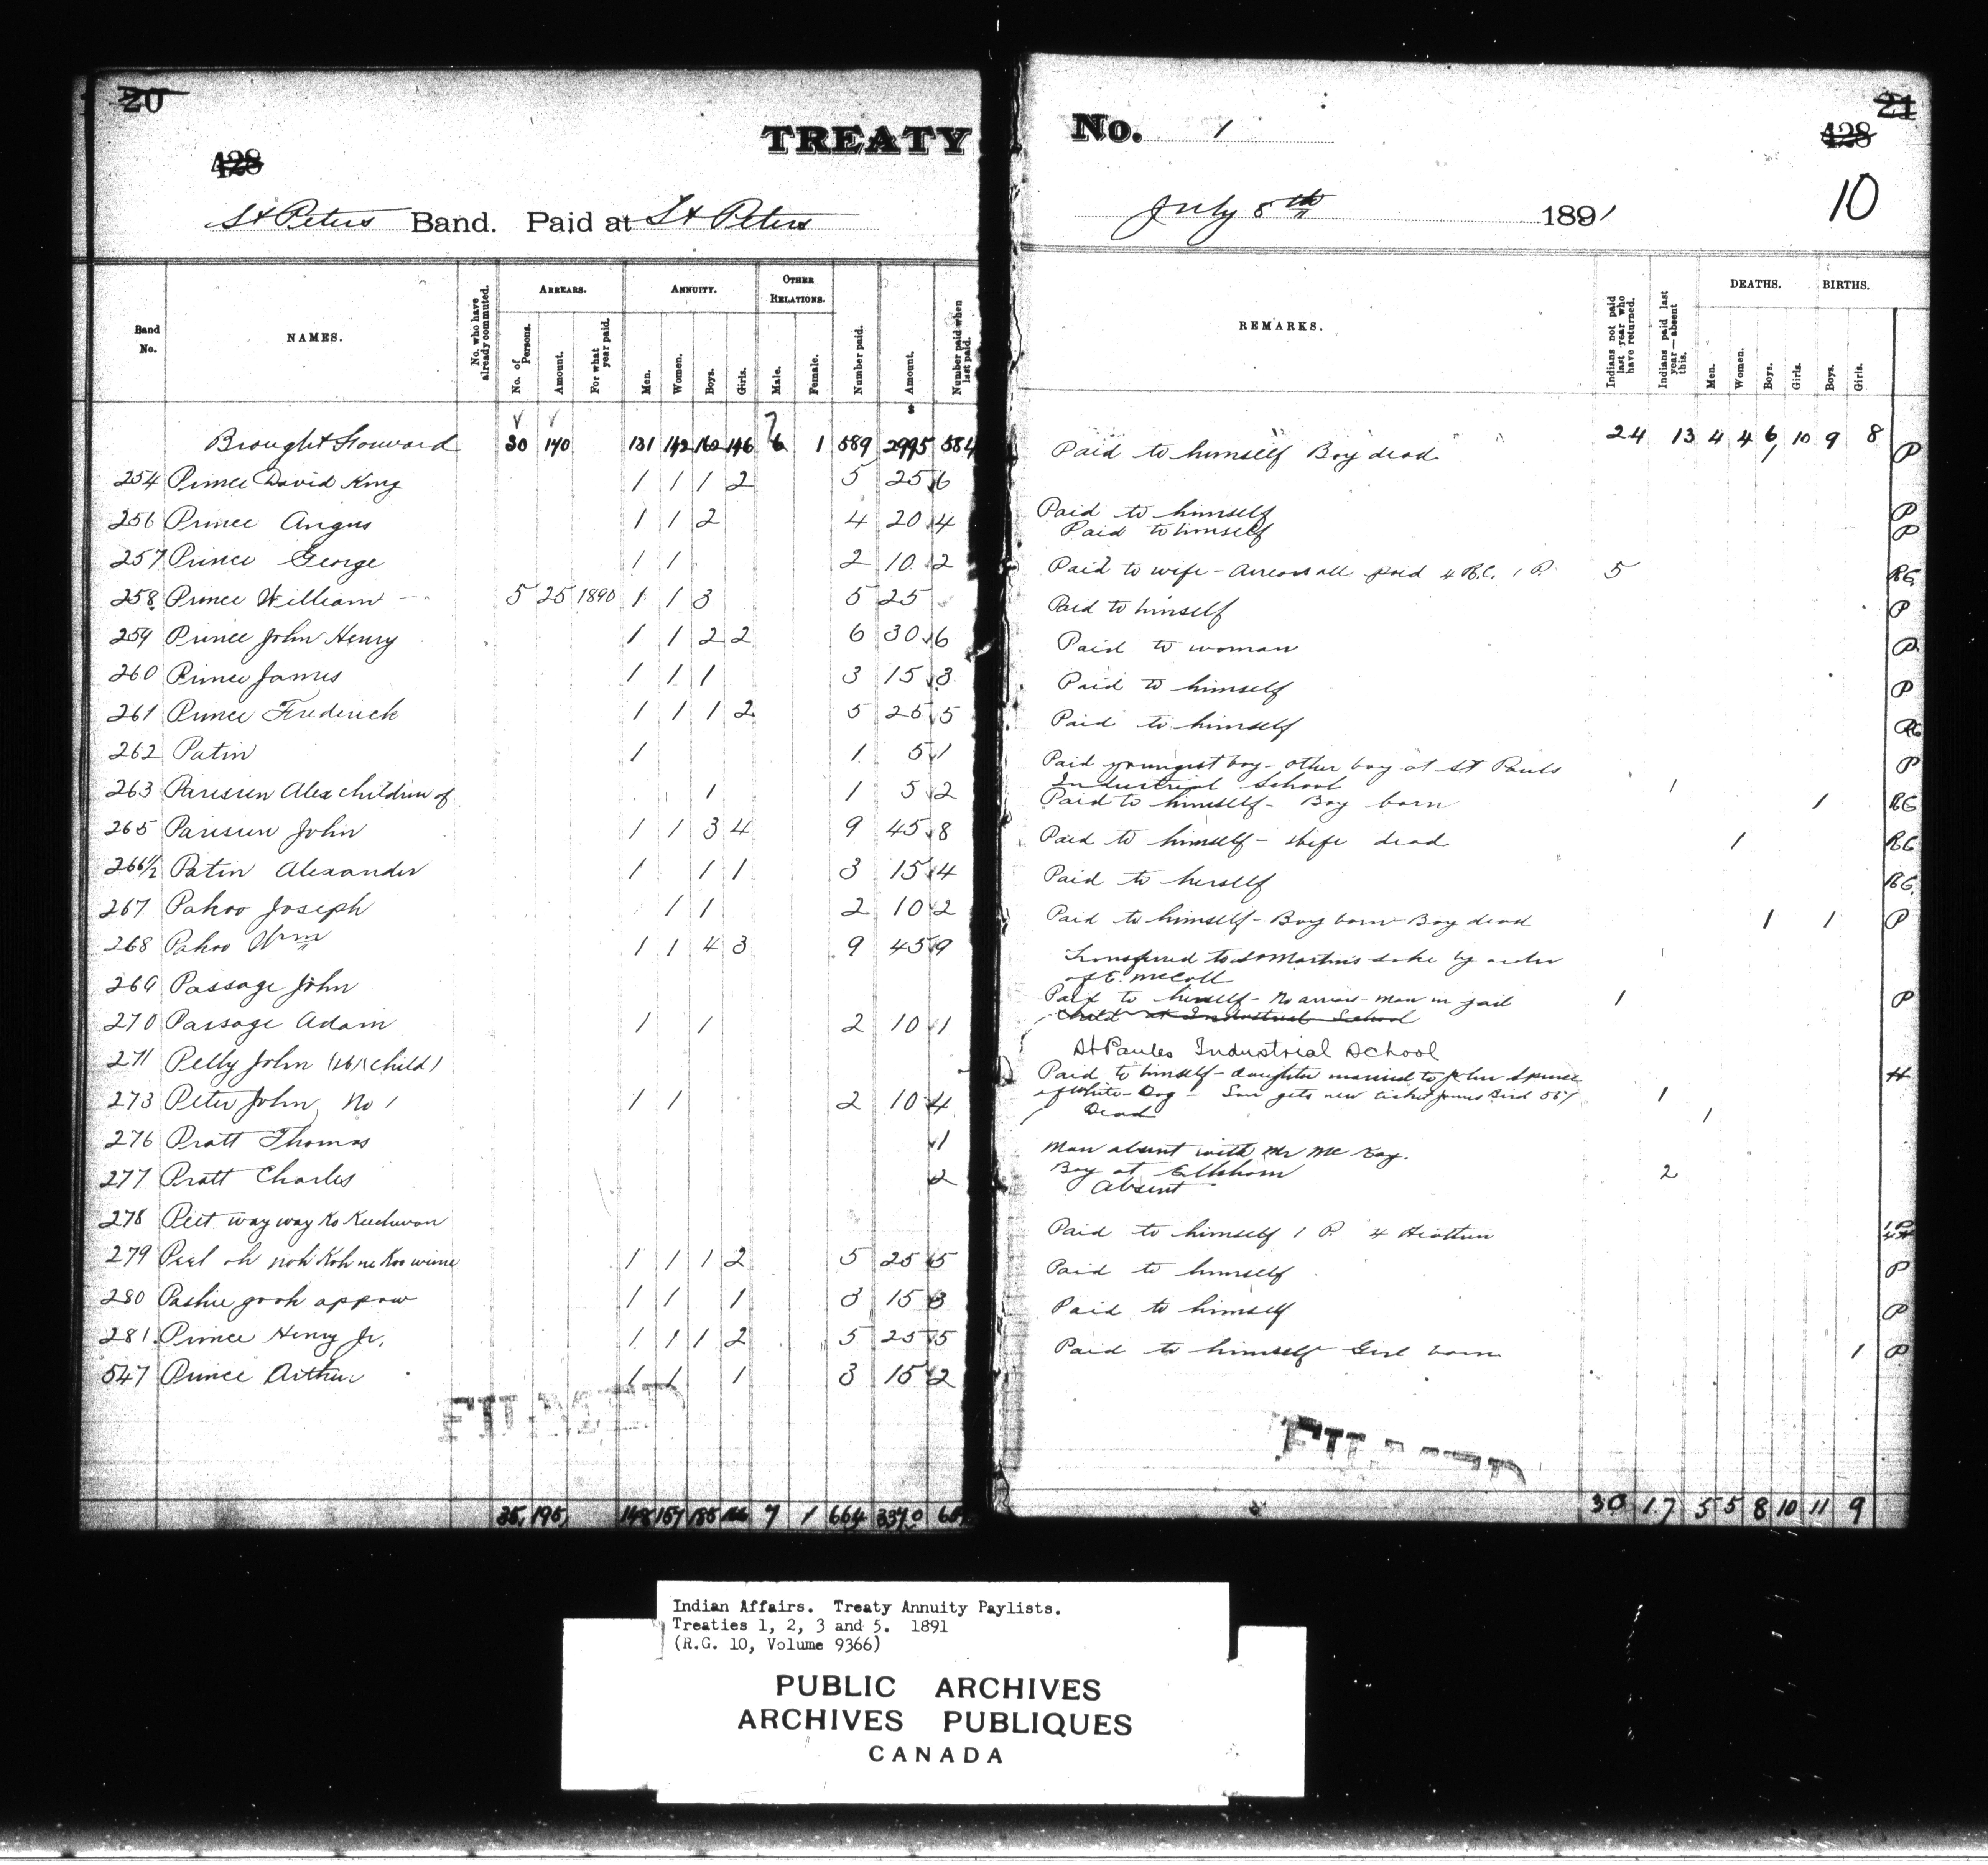 20
428
TREATY
St Peters Band. Paid at St Peters
Band No.
NAMES.
No. who have already commuted.
ARREARS.
No. of Persons.
Amount.
For what year paid.
ANNUITY.
Men.
Women.
Boys.
Girls.
OTHER RELATIONS.
Male.
Female.
Number paid.
Amount.
Number paid when last paid.
Brought Forward 30 170 131 142 162 146 6 1 589 2995 584
7
254 Prince David King 1 1 1 2 5 25 6
256 Prince Angus 1 1 2 4 20 4
257 Prince George 1 1 2 10 2
258 Prince William 5 25 1890 1 1 3 5 25
259 Prince John Henry 1 1 2 2 6 30 6
260 Prince James 1 1 1 3 15 3
261 Prince Frederick 1 1 1 2 5 25 5
262 Patin 1 1 5 1
263 Parisien Alex children of 1 1 5 2
265 Parisien John 1 1 3 4 9 45 8
266 1/2 Patin Alexander 1 1 1 3 15 4
267 Pahoo Joseph 1 1 2 10 2
268 Pahoo Wm 1 1 4 3 9 45 9
269 Passage John
270 Passage Adam 1 1 2 10 1
271 Pelly John (child)
273 Peter John No 1 1 1 2 10 4
276 Pratt Thomas 1
277 Pratt Charles 2
278 Peit way way Ko Keuchwan
279 Peel oh noh Koh ne Koo winne 1 1 1 2 5 25 5
280 Pashie gooh appow 1 1 1 3 15 3
281 Prince Henry Jr. 1 1 1 2 5 25 5
547 Prince Arthur 1 1 1 3 15 2
35 195 148 157 185 166 7 1 664 3370
No. 1
21
428
10
July 8th 1891
REMARKS.
Indians not paid last year who have returned.
Indians paid last year—absent this.
DEATHS.
Men.
Women.
Boys.
Girls.
BIRTHS.
Boys.
Girls.
24 13 4 4 6 10 9 8
Paid to himself Boy dead P
Paid to himself P
Paid to himself P
Paid to wife - Arrears all paid 4 R.C. 1 P. 5 RC
Paid to himself P
Paid to woman P
Paid to himself P
Paid to himself RC
Paid youngest boy - other boy at St Pauls P
Industrial School 1
Paid to himself - Boy born 1 RC
Paid to himself - Wife dead 1 RC
Paid to herself RC.
Paid to himself - Boy born Boy dead 1 1 P
Transferred to St Martins Lake by order
of E. McColl
Paid to himself - No arrears - man in jail 1 P
Child at Industrial School
St Paules Industrial School
Paid to himself - daughter married to John Spence H
of White-Dog - Son gets new ticket James Bird 567 1
Dead 1
Man absent with Mr McKay.
Boy at Elkhorn 2
Absent
Paid to himself 1 P. 4 Heathen 1P 4H
Paid to himself P
Paid to himself P
Paid to himself Girl born 1 P
30 17 5 5 8 10 11 9
Indian Affairs. Treaty Annuity Paylists.
Treaties 1, 2, 3 and 5. 1891
(R.G. 10, Volume 9366)
PUBLIC ARCHIVES
ARCHIVES PUBLIQUES
CANADA